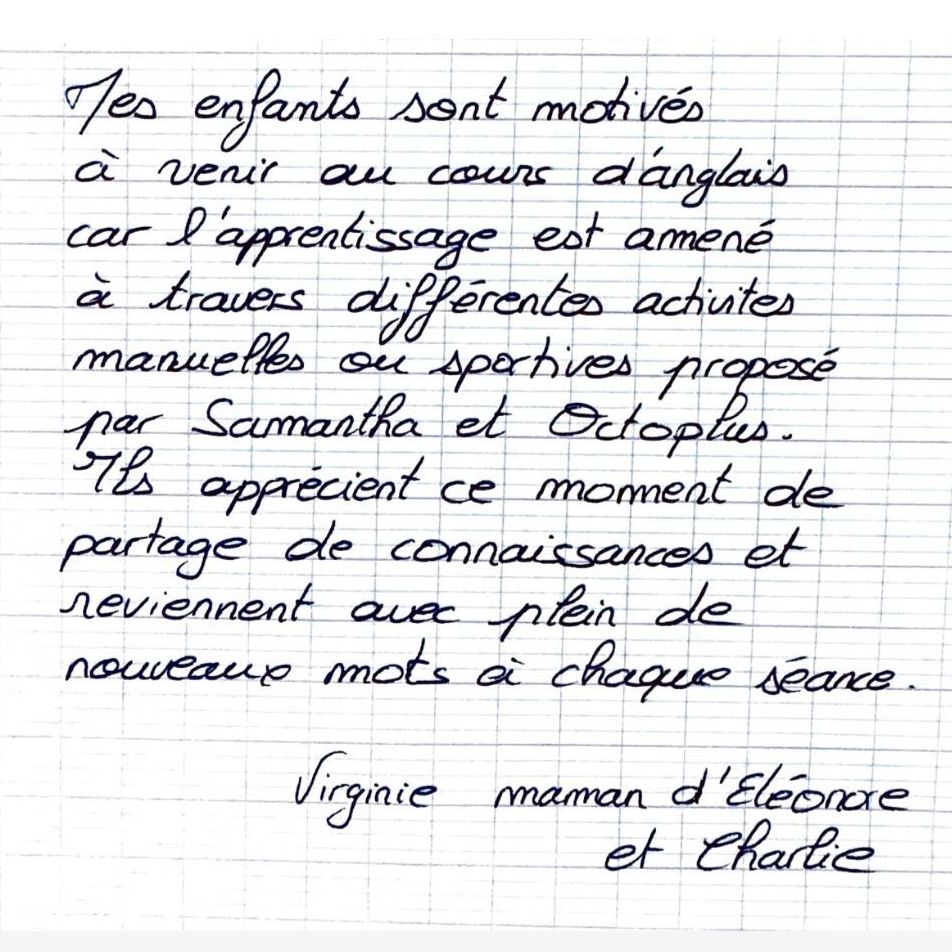 Mes enfants sont motivés
à venir au cours d'anglais
car l'apprentissage est amené
à travers différentes activites
manuelles ou sportives proposé
par Samantha et Octoplus.
Ils apprécient ce moment de
partage de connaissances et
reviennent avec plein de
nouveaux mots à chaque séance.
Virginie maman d'Eléonore
et Charlie